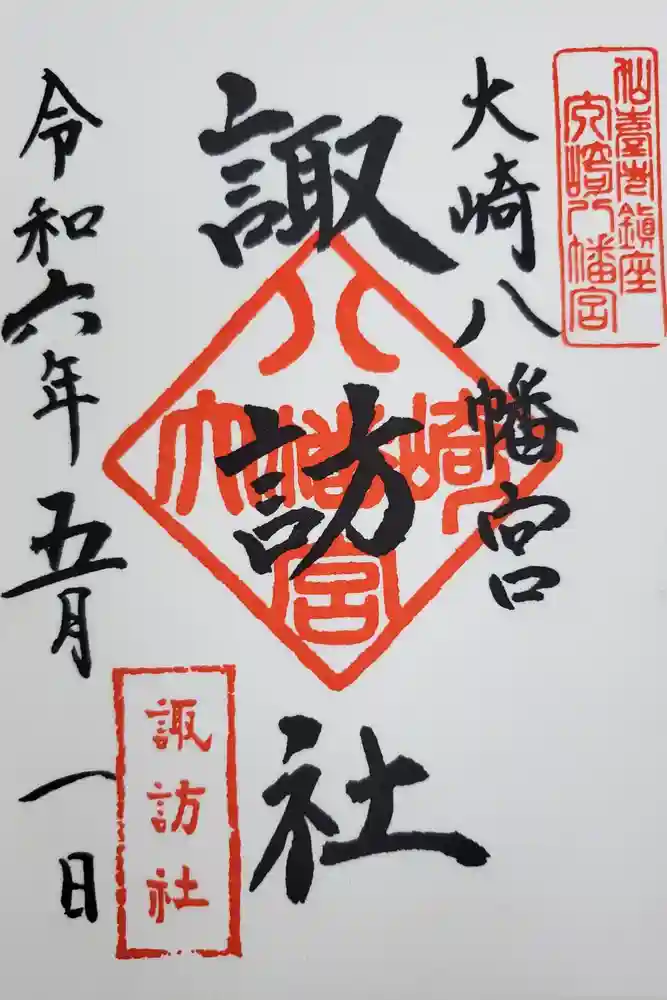 仙臺巷鎮座
大崎八幡宮
大崎八幡宮
諏訪社
八
大幡崎
宮
令和六年五月一日
諏訪社